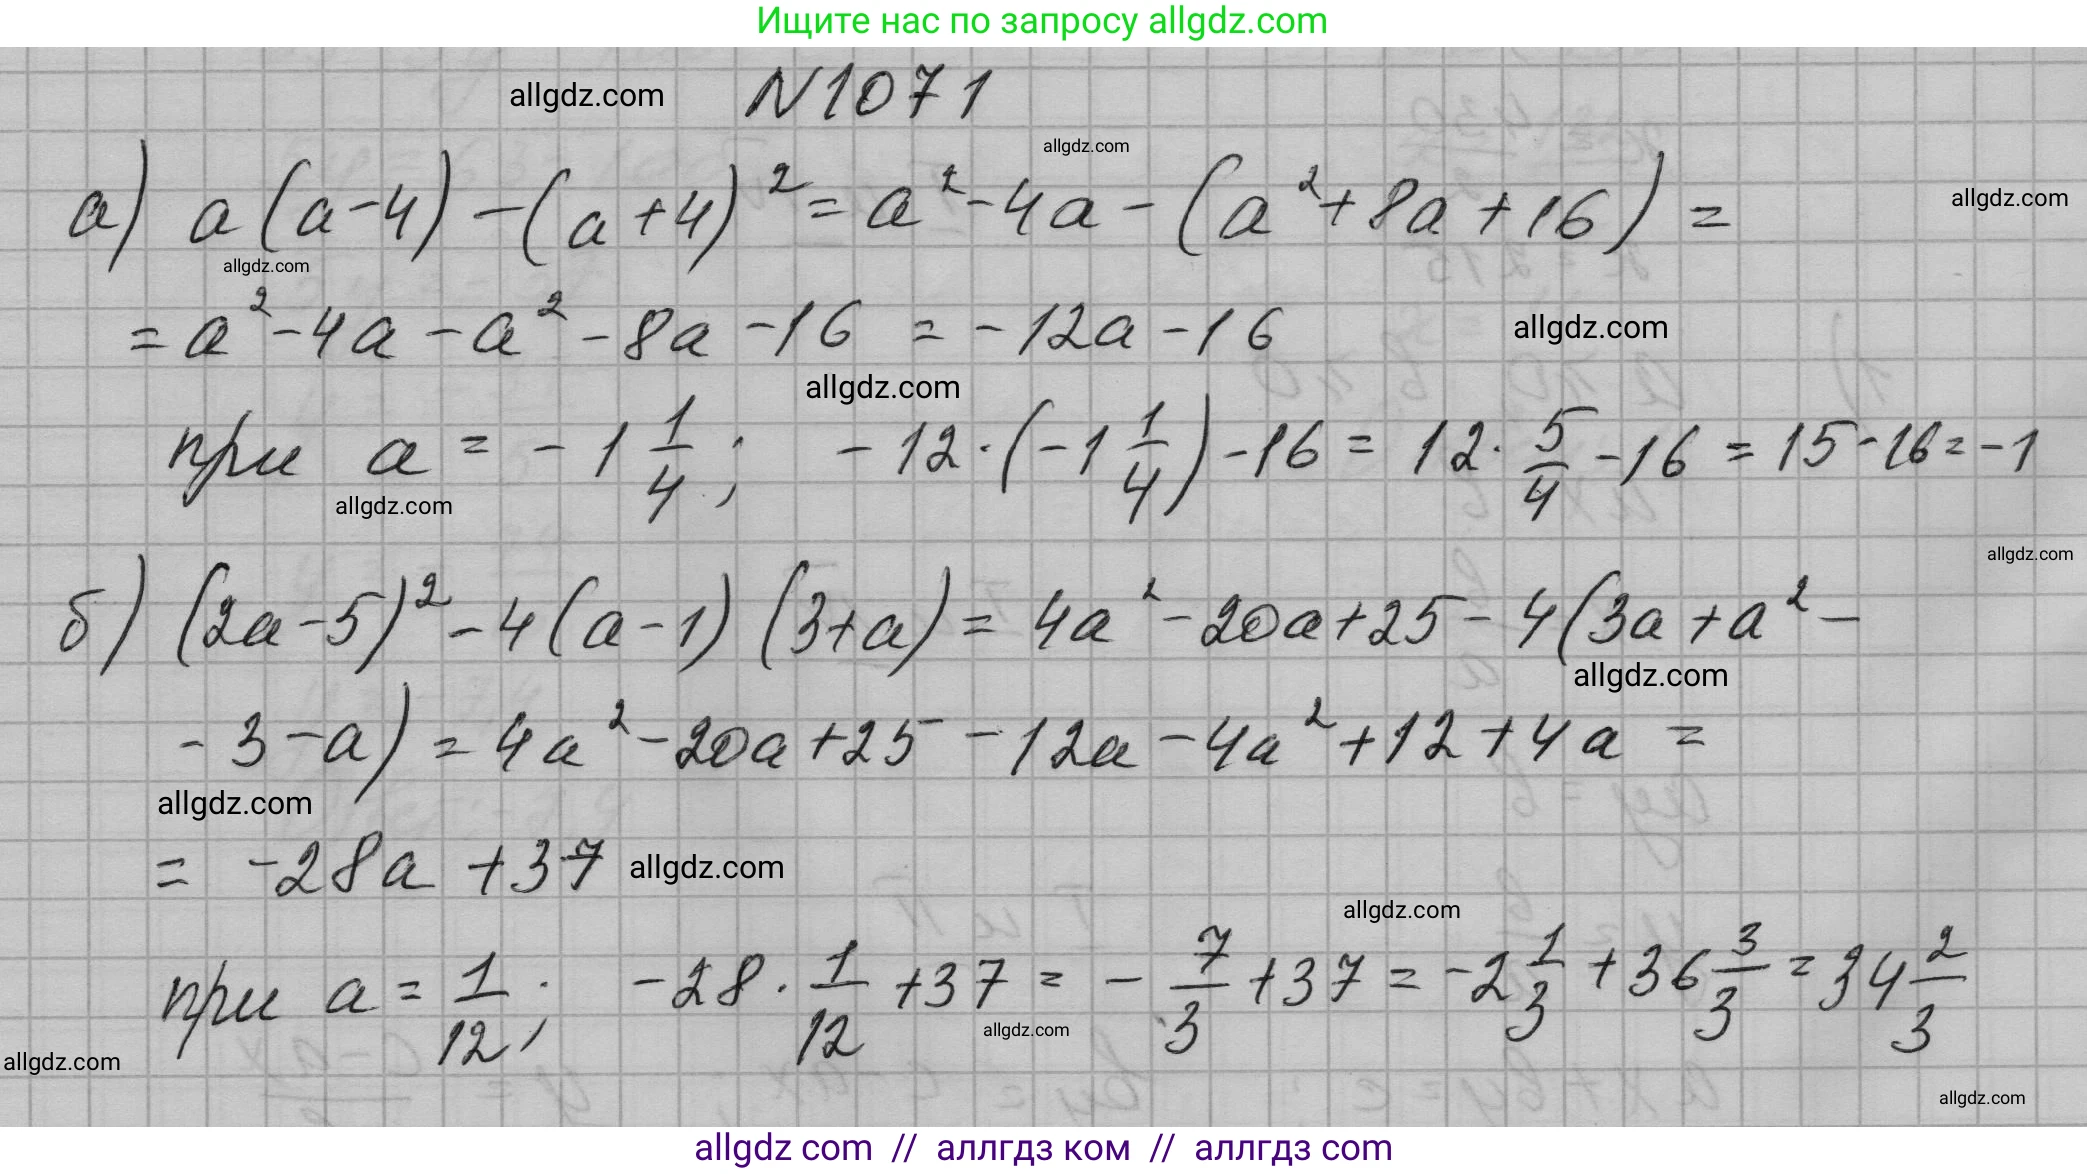 Ищите нас по запросу allgdz.com
allgdz.com N1071
allgdz.com
а) a(a-4)-(a+4)² = a²-4a-(a²+8a+16) = allgdz.com
allgdz.com
= a²-4a-a²-8a-16 = -12a-16 allgdz.com
allgdz.com
при a = -1 1/4; -12·(-1 1/4)-16 = 12·5/4-16 = 15-16 = -1
allgdz.com
allgdz.com
б) (2a-5)²-4(a-1)(3+a) = 4a²-20a+25-4(3a+a²-
allgdz.com
-3-a) = 4a²-20a+25-12a-4a²+12+4a =
allgdz.com
= -28a+37 allgdz.com
allgdz.com
при a = 1/12; -28·1/12+37 = -7/3+37 = -2 1/3+36 3/3 = 34 2/3
allgdz.com
allgdz.com
allgdz.com
allgdz com // аллгдз ком // аллгдз com